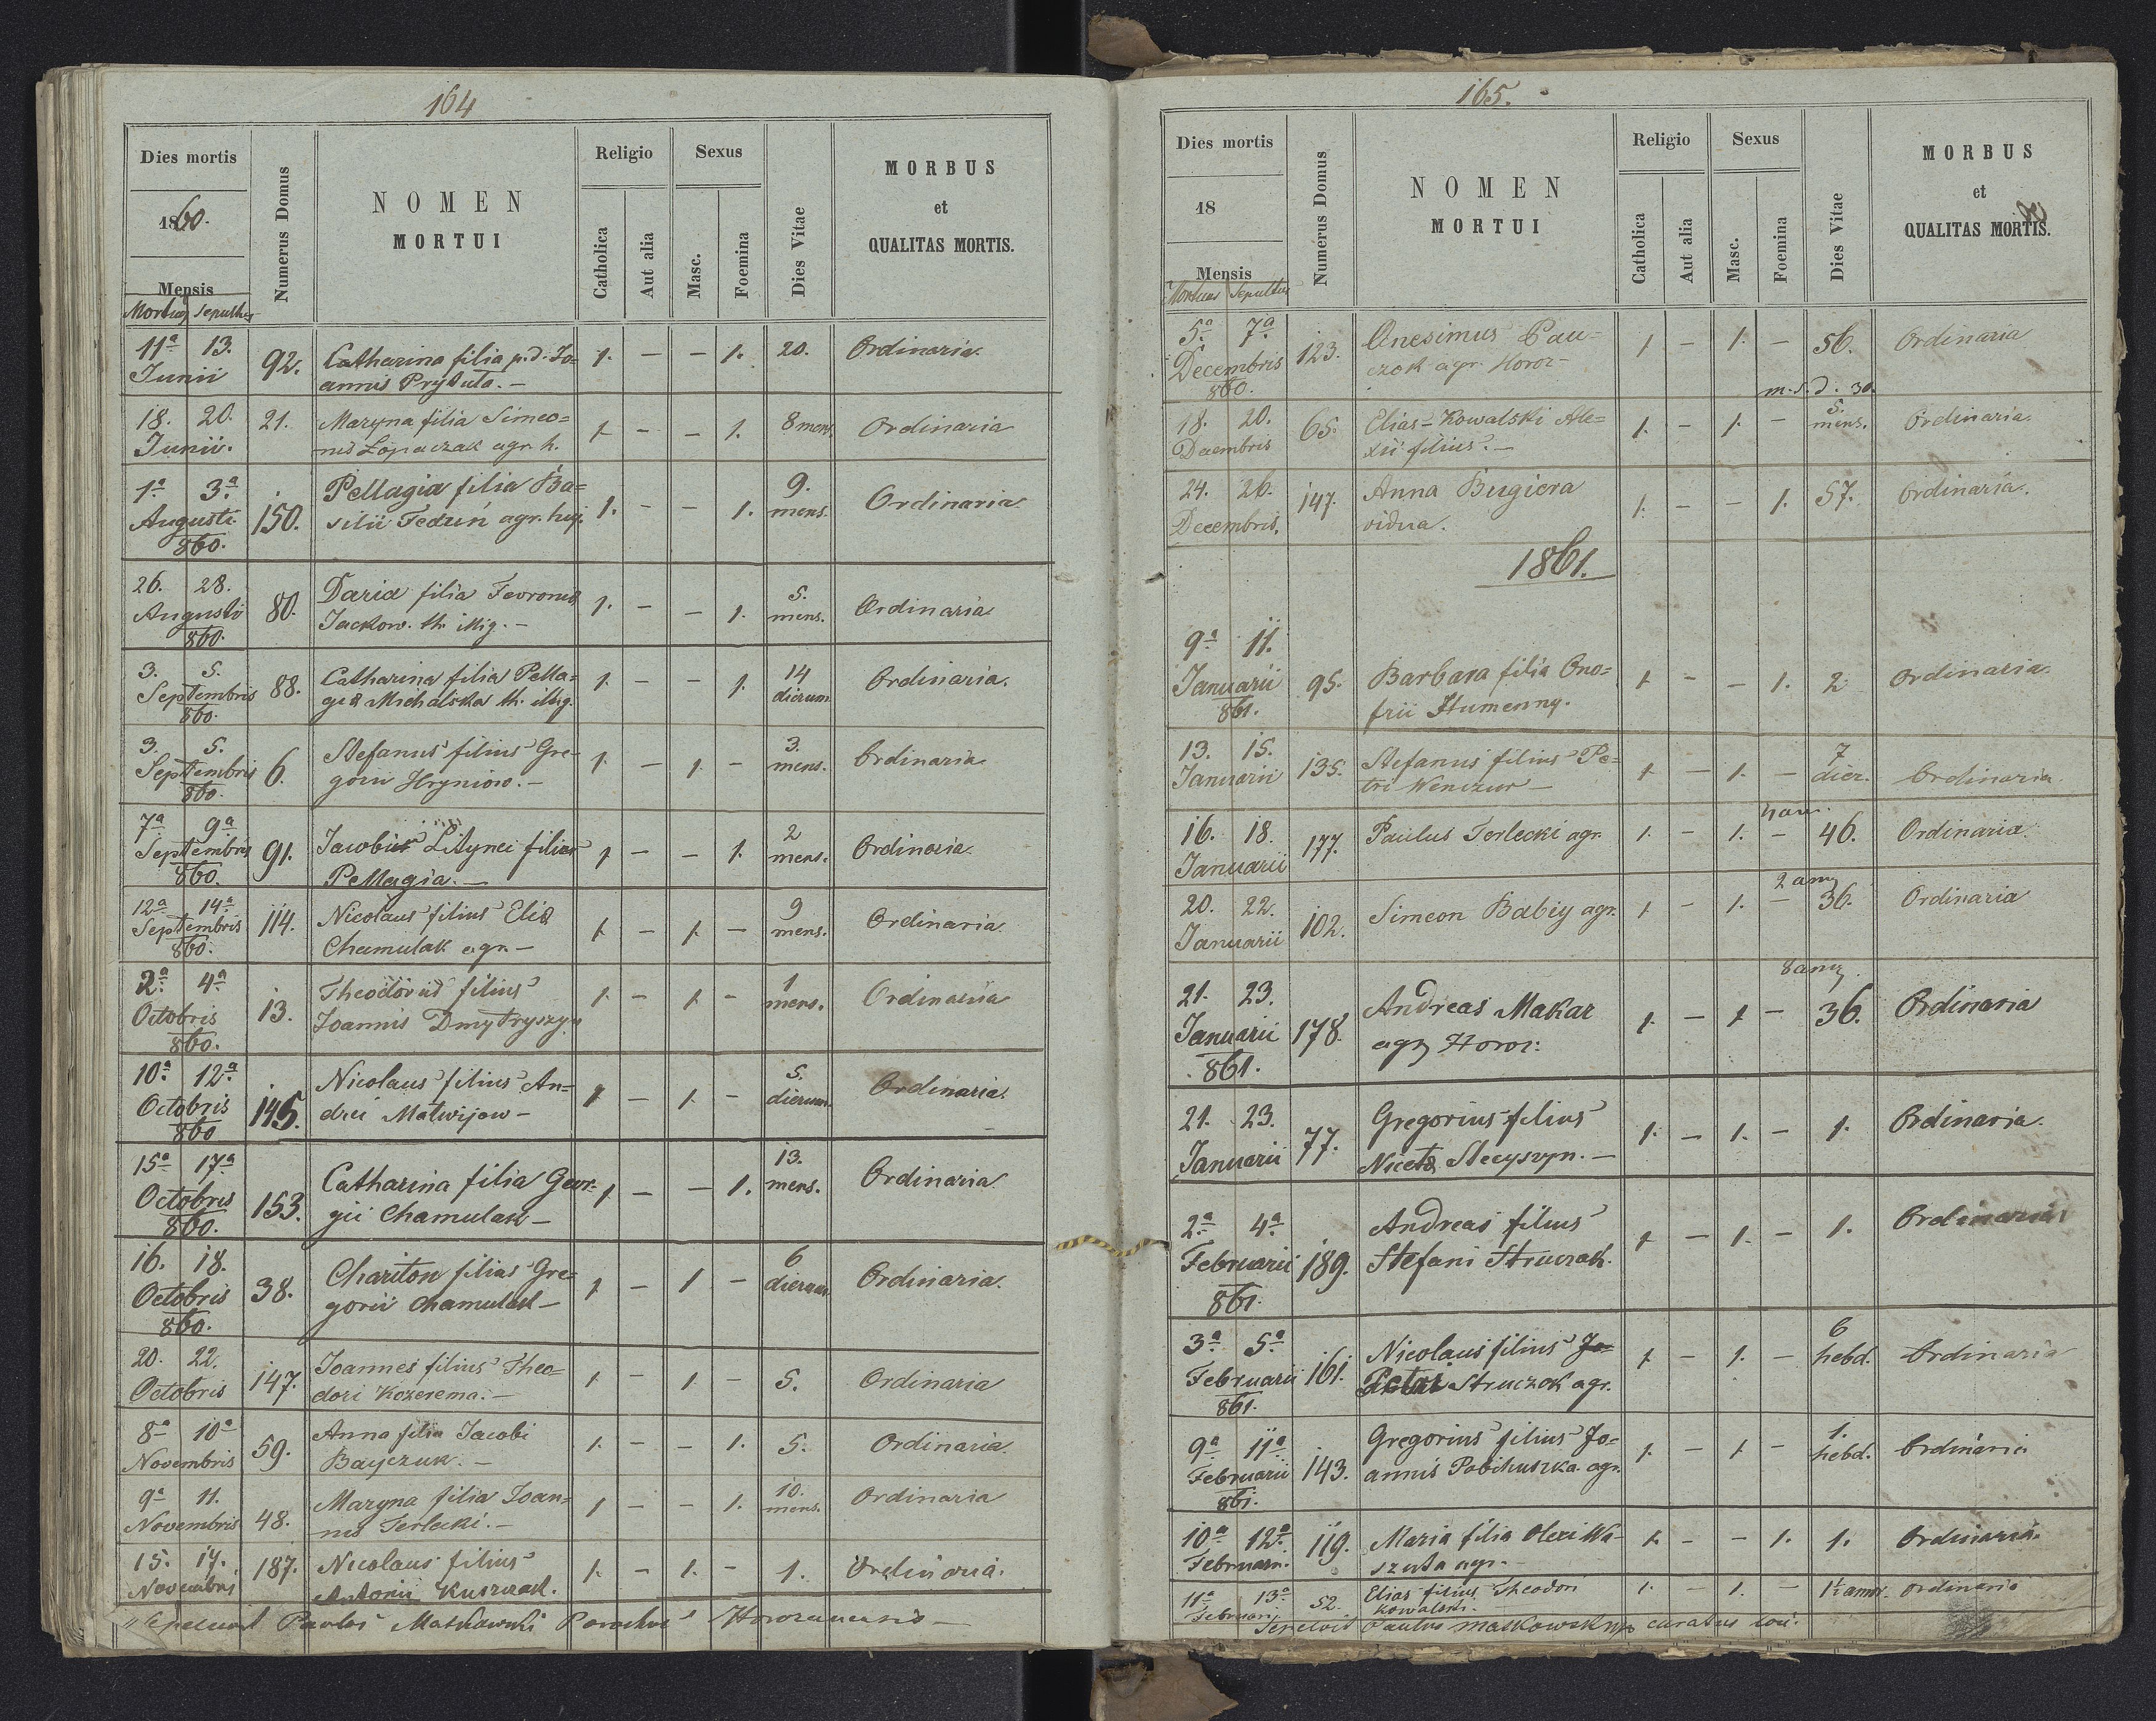 164
Dies mortis
1860.
Mensis
Mortuus Sepultus
Numerus Domus
NOMEN
MORTUI
Religio
Catholica
Aut alia
Sexus
Masc.
Foemina
Dies Vitae
MORBUS
et
QUALITAS MORTIS.
11ª 13. 92. Catharina filia p.d. Jo= 1. — — 1. 20. Ordinaria
Junii annis Prytuła. —
18. 20. 21. Maryna filia Simeo= 1. — — 1. 8 mens. Ordinaria
Junii. nis Łopaczak agr. h.
1ª 3ª Pellagia filia Ba= 9.
Augusti 150. silii Fedzin agr. huj. 1. — — 1. mens. Ordinaria
860.
26. 28. 80. Daria filia Fevroniæ 1. — — 1. 5. Ordinaria
Augusti Jackow. th. illig. — mens.
860.
3. 5. 88. Catharina filia Pella= 1. — — 1. 14 Ordinaria.
Septembris giæ Michalska th. illig. dierum
860.
3. 5. 6. Stefanus filius Gre= 1. — 1. — 3. Ordinaria
Septembris gorii Hryniów. — mens.
860.
7ª 9ª 91. Jacobi Litynei filia 1. — — 1. 2 Ordinaria
Septembris Pellagia. — mens.
860.
12ª 14ª 114. Nicolaus filius Eliæ 1. — 1. — 9 Ordinaria
Septembris Chamulak agr. — mens.
860.
2ª 4ª 13. Theodorus filius 1. — 1. — 1 Ordinaria
Octobris Joannis Dmytryszyn mens.
860.
10ª 12ª Nicolaus filius An= 5.
Octobris 145. drei Matwijow — 1. — 1. — dierum Ordinaria.
860
15ª 17ª Catharina filia Geor= 13.
Octobris 153. gii Chamulak — 1. — — 1. mens. Ordinaria
860.
16. 18. Chariton filius Gre= 6
Octobris 38. gorii Chamulak — 1. — 1 — dierum Ordinaria.
860.
20. 22. 147. Joannes filius Theo= 1. — 1. — 5. Ordinaria
Octobris dori Kozerema. —
8ª 10ª 59. Anna filia Jacobi 1. — — 1. 5. Ordinaria.
Novembris Bayczuk. —
9ª 11. 48. Maryna filia Joan= 1 — — 1. 10. Ordinaria
Novembris nis Terlecki. — mens.
15. 17. 187. Nicolaus filius 1. — 1. — 1. Ordinaria.
Novembris Antonii Kuszczak.
Sepelivit Paulus Maskowski Parochus —
165.
Dies mortis
18
Mensis
Mortuus Sepultus
Numerus Domus
NOMEN
MORTUI
Religio
Catholica
Aut alia
Sexus
Masc.
Foemina
Dies Vitae
MORBUS
et
QUALITAS MORTIS.
5ª 7ª 123. Onesimus Pau= 1 — 1. — 56. Ordinaria
Decembris czok agr. Horoz—
860. m. s. d. 30.
18. 20. 65. Elias Kowalski Ale= 1. — 1. — 5. Ordinaria
Decembris xii filius. — mens.
24. 26. 147. Anna Bugiera 1. — — 1. 57. Ordinaria.
Decembris. vidua.
1861.
9ª 11.
Januarii 95. Barbara filia Ono= 1. — — 1. 2 Ordinaria.
861. frii Humenny.
13. 15. 135. Stefanus filius Pe= 1. — 1. — 7 Ordinaria
Januarii tri Wenczur — dier.
16. 18. 177. Paulus Terlecki agr. 1. — 1. — 46. Ordinaria
Januarii
20. 22. 102. Simeon Babiy agr. 1 — 1. — 36. Ordinaria
Januarii
21. 23. Andreas Makar
Januarii 178. agr. Horoz: 1. — 1. — 36. Ordinaria
861.
21. 23. 77. Gregorius filius 1. — 1. — 1. Ordinaria.
Januarii Nicetæ Stecyszyn. —
2ª 4ª Andreas filius 1. — 1. — 1. Ordinaria
Februarii 189. Stefani Struczak.
861.
3ª 5ª Nicolaus filius Jo= 6
Februarii 161. Petri Struczok agr. 1. — 1. — hebd. Ordinaria
861.
9ª 11ª Gregorius filius Jo= 1.
Februarii 143. annis Pobihuszka agr. 1. — 1. — hebd. Ordinaria
861.
10ª 12ª 119. Maria filia Olexi Wa= 1. — — 1. 1. Ordinaria.
Februarii. szuta agr. —
11ª 13ª 52. Elias filius Theodori 1. — 1. — 1½ annor. Ordinaria
Februarii Kowalski.
Sepelivit Paulus Maskowski curatus loci.